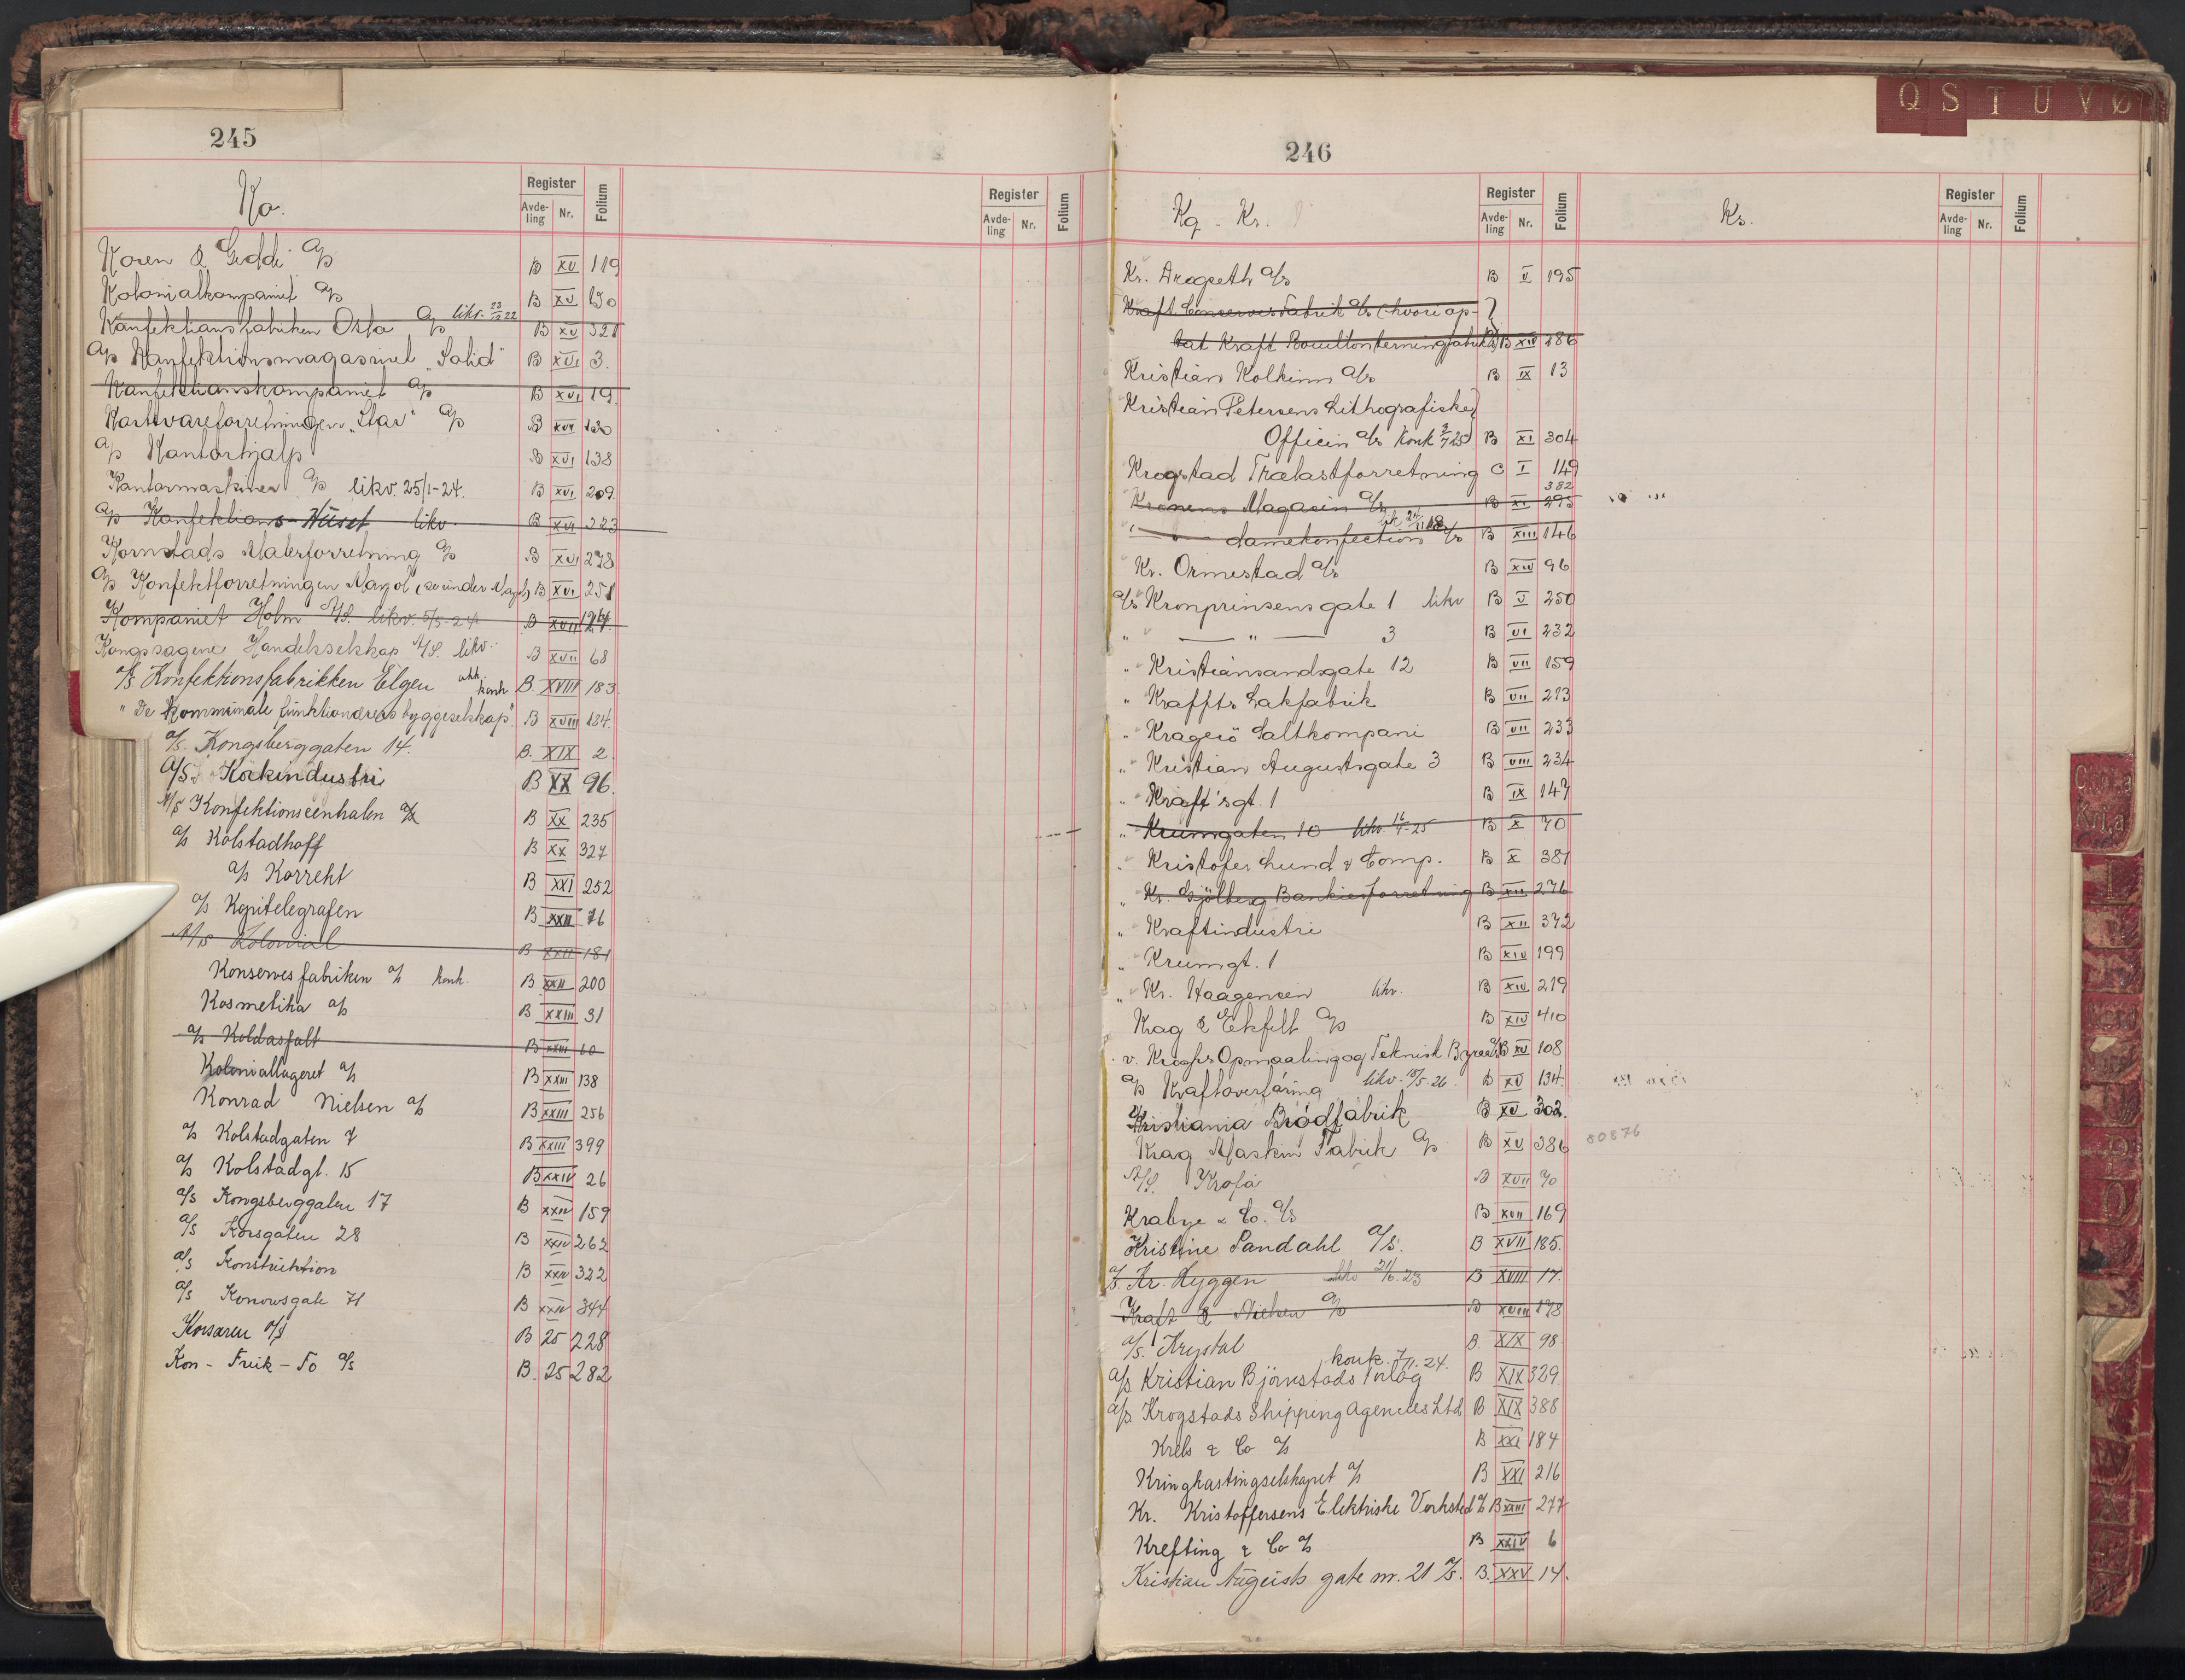 245
Ko.
Register
Avde-
ling
Nr.
Folium
Register
Avde-
ling
Nr.
Folium
Koren & Gedde A/S B XV 119
Kolonialkompaniet A/S B XV 150
Konfektionsfabriken Osfa A/S likv. 23/12 22 B XV 321
A/S Konfektionsmagasinet "Solid" B XVI 3.
Konfektionskompaniet A/S B XVI 19.
Kortvareforretningen "Star" A/S B XVI 130
A/S Kontorhjælp B XVI 138
Kontormaskiner A/S likv. 25/1-24. B XVI 209
A/S Konfektions-Huset likv. B XVI 223
Kornstads Malerforretning A/S B XVI 278
A/S Konfektforretningen Marjol (se under Marjol) B XVI 251
Kompaniet Holm A/S. likv. 5/5-24 B XVII
Kongssagene Handelsselskap A/S. likv. B XVII 68
A/S. Konfektionsfabrikken Elgen akk. konk B. XVIII 183
" De kommunale funktionærers byggeselskap". B XVIII 184.
A/S. Kongsberggaten 14. B. XIX 2.
A/S. Kockindustri B XX 96.
A/S Konfektionscentralen B XX 235
A/S Kolstadhoff B XX 327
A/S Korrekt B XXI 252
A/S Kopitelegrafen B XXII 76
A/S Kolonial B XXII 181
Konservesfabriken A/S konk. B XXII 200
Kosmetika A/S B XXIII 31
A/S Koldasfalt B XXIII 60
Koloniallageret A/S B XXIII 138
Konrad Nielsen A/S B XXIII 256
A/S Kolstadgaten 7 B XXIII 399
A/S Kolstadgt. 15 B XXIV 26
A/S Kongsberggaten 17 B XXIV 159
A/S Korsgaten 28 B XXIV 262
A/S Konstruktion B XXIV 322
A/S Konowsgate 71 B XXIV 344
Korsaren A/S B 25 228
Kon - Frik - To A/S B. 25 282
246
Kq - Kr.
Register
Avde-
ling
Nr.
Folium
Ks.
Register
Avde-
ling
Nr.
Folium
Q S T U V Ø
Kr. Dragseth A/S B V 195
Kraft Conserves Fabrik A/S (hvori op-
tat Kraft Bouillonterningfabrik A/S) B XIV 286
Kristian Kolkinn A/S B IX 13
Kristian Petersens Lithografiske
Officin A/S Konk 3/7 25 B XI 304
Krogstad Trælastforretning C I 149
382
Kronens Magasin A/S B XI 295
" — " — damekonfection A/S B XIII 146
Kr. Ormestad A/S B XIV 96
A/S Kronprinsens gate 1 likv B V 250
" — " — 3 B VI 232
" Kristiansandsgate 12 B VII 159
" Kraffts Lakfabrik B VII 213
" Kragerö Saltkompani B VII 233
" Kristian Augustsgate 3 B VIII 234
" Kraft'sgt. 1 B IX 147
" Krumgaten 10 likv. B X 70
" Kristofer Lund & Comp. B X 381
" Kr. Gjölberg Bankierforretning B XII 276
" Kraftindustri B XII 372
" Krumgt. 1 B XIV 199
" Kr. Haagensen likv. B XIV 219
Krag & Ekfelt A/S B XIV 410
v. Kroghs Opmaaling og Teknisk Byraa A/S B XV 108
A/S Kraftoverføring likv. B XV 134.
Kristiania Brödfabrik B XV 302.
Krag Maskin Fabrik A/S B XV 386 80876
A/S. Krafa B XVII 70
Krabye & Co. A/S B XVII 169
Kristine Sandahl A/S. B XVII 185.
A/S Kr. Hyggen likv 21/6.23 B XVIII 17.
Kraft & Nielsen A/S B XVIII 178
A/S. Krystal B. XIX 98.
konk. 7/11.24.
A/S Kristian Björnstads Forlag B XIX 329
A/S Krogstads Shipping Agencies Ltd B XIX 388
Krebs & Co A/S B XXI 184
Kringkastingselskapet A/S B XXI 216
Kr. Kristoffersens Elektriske Verksted A/S B XXIII 277
Krefting & Co A/S B XXIV 6
Kristian Augusts gate nr. 21 A/S. B. XXV 14.